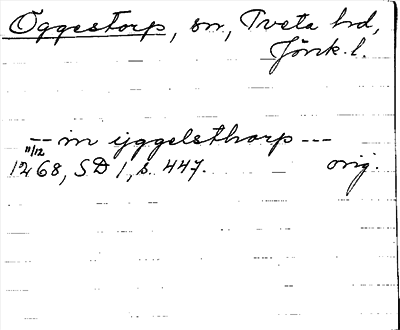 Öggestorp, sn, Tveta hd,
Jönk. l.
-- in yggelsthorp ---
11/12
1268, SD 1, s. 447. orig.